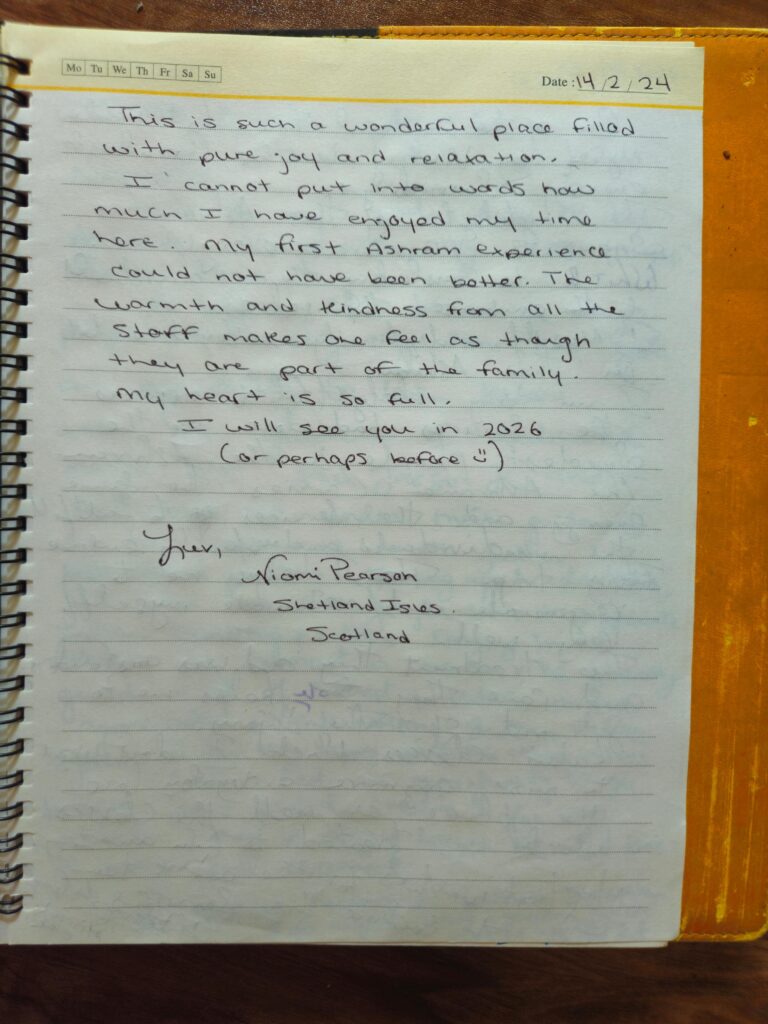 Mo Tu We Th Fr Sa Su
Date : 14 / 2 / 24
This is such a wonderful place filled
with pure joy and relaxation.
I cannot put into words how
much I have enjoyed my time
here. My first Ashram experience
could not have been better. The
warmth and kindness from all the
staff makes one feel as though
they are part of the family.
My heart is so full.
I will see you in 2026
(or perhaps before ☺)
Niomi Pearson
Shetland Isles.
Scotland